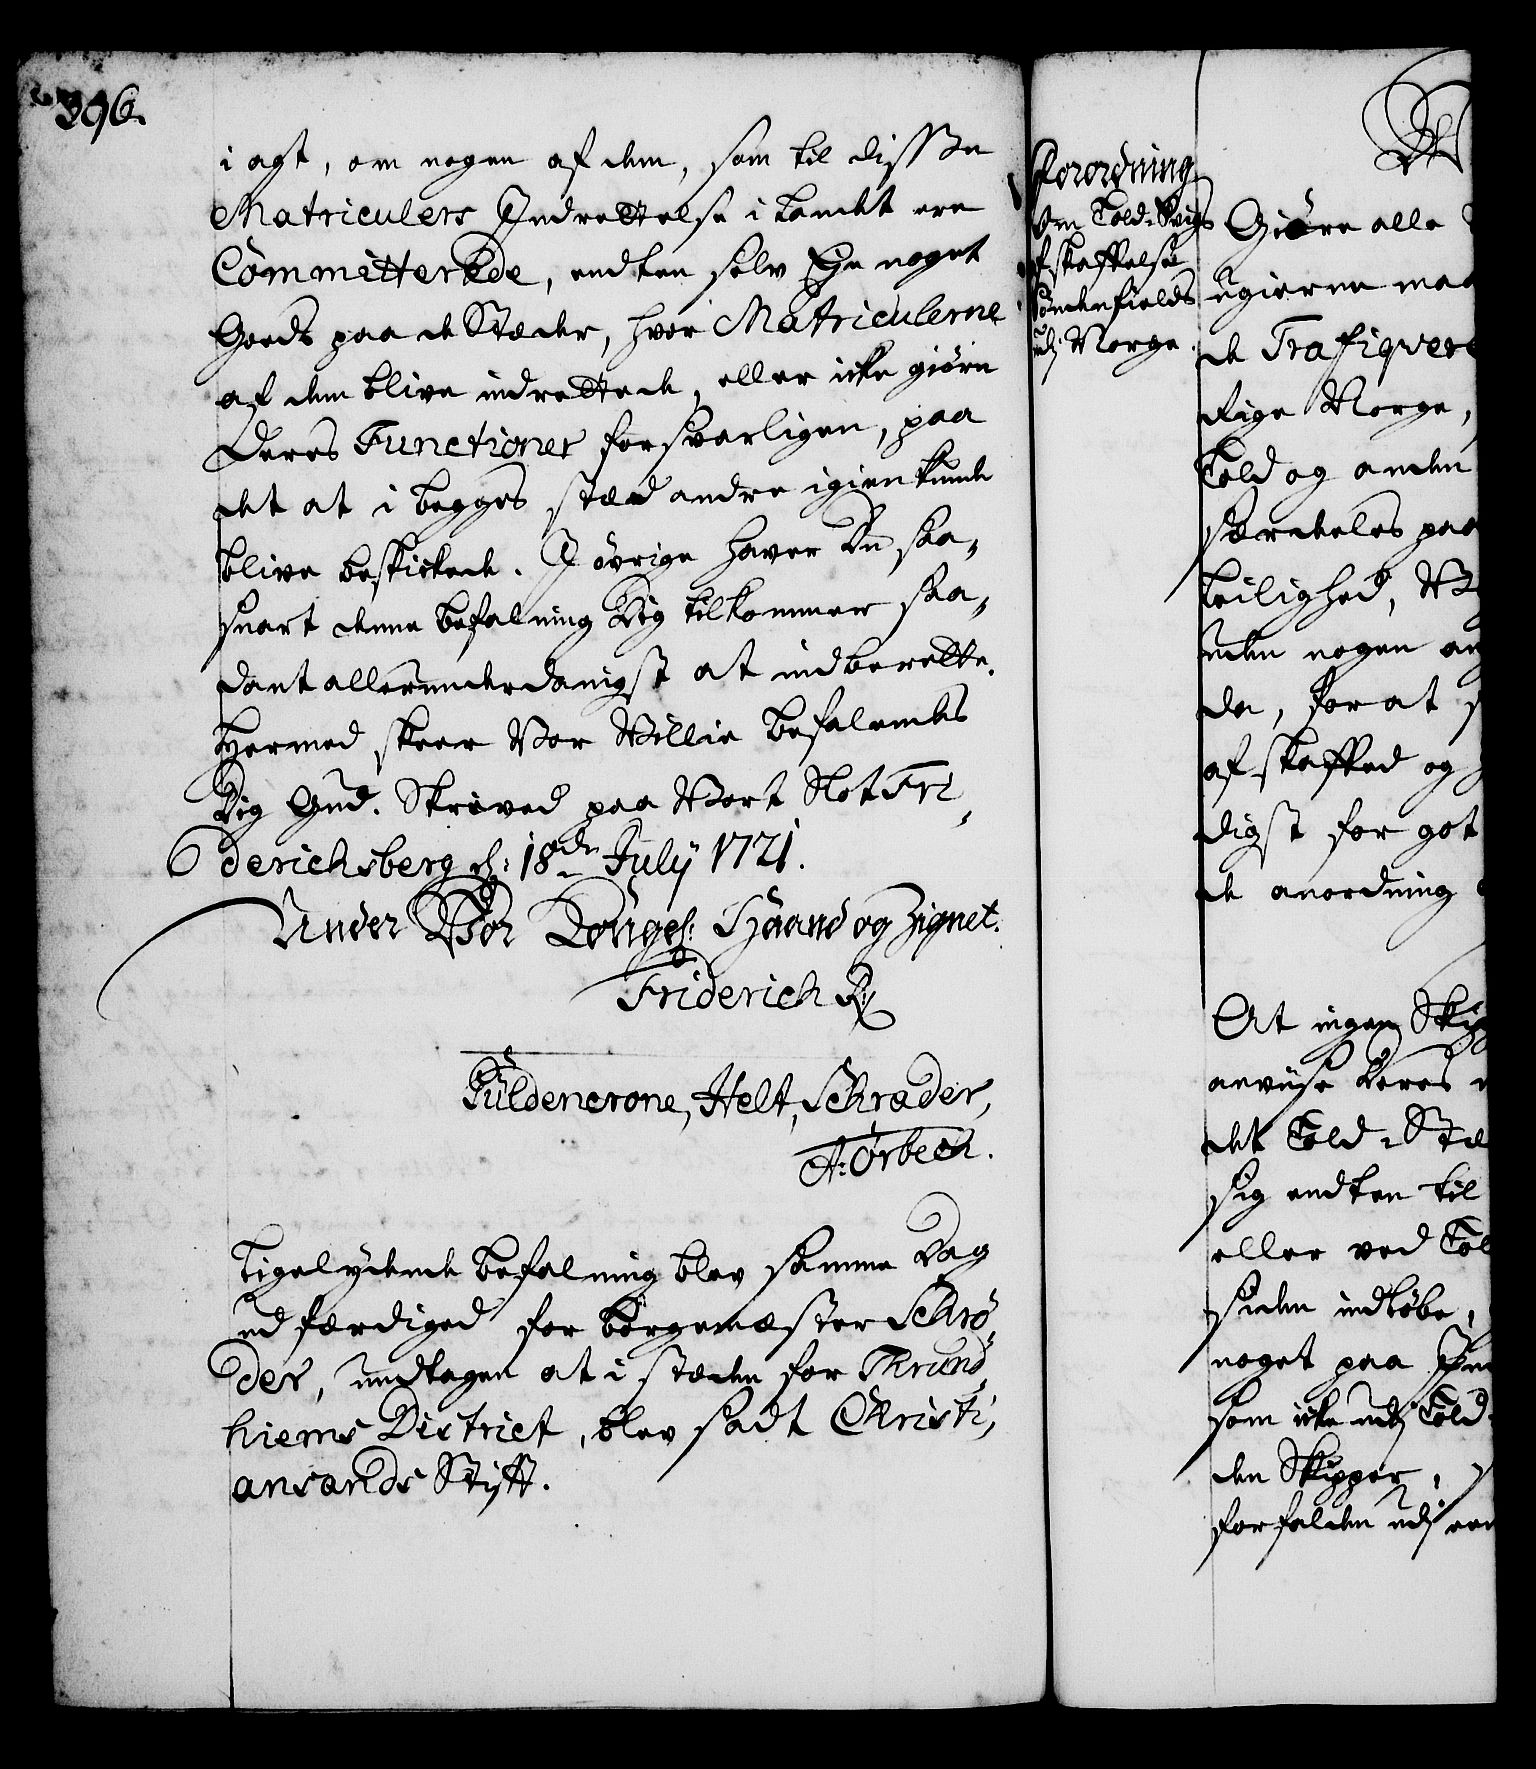 396.
i agt, om nogen af dem, som til disse
Matriculers Indrettelse i Landet ere
Committerede, endten selv Eye noget
Goeds paa de Stæder, hvor Matriculerne
af dem blive indrettede, eller icke giøre
Deres Functioner forsvarligen, paa
det at i begges stæd andre igien kunde
blive beskickede. I øvrige haver Du saa,
snart denne befalning Dig tilkommer saa,
dant allerunderdanigst at indberette.
Hermed skeer Vor Villie befalendes
Dig Gud. Skrived paa Vort Slot Fri,
derichsberg d: 18de July 1721.
Under Vor Konge: Haand og Zignet.
Friderich R:
Güldencrone, Helt, Schrader,
A: Ørbech.
Ligelydende befalning blev samme Dag
udfærdiged for borgemæster Schrø,
der, undtagen at i stæden for Thrund,
hiems District, blev sadt Christi,
ansands Stift.
Forordning
Om Told-Svigs
afskaffelse
Søndenfields
udj Norge.
Giøre alle
ugierne maa
de Trafiqvere
Rige Norge,
Told og anden
særdeles paa
leilighed,
uden nogen
da, for at
afskaffed og
digst for got
de anordning
At ingen
anviise Deres
det Told-
sig endten til
eller ved
siden indløbe,
noget paa
som icke udj Told
den Skipper,
forfalden udj